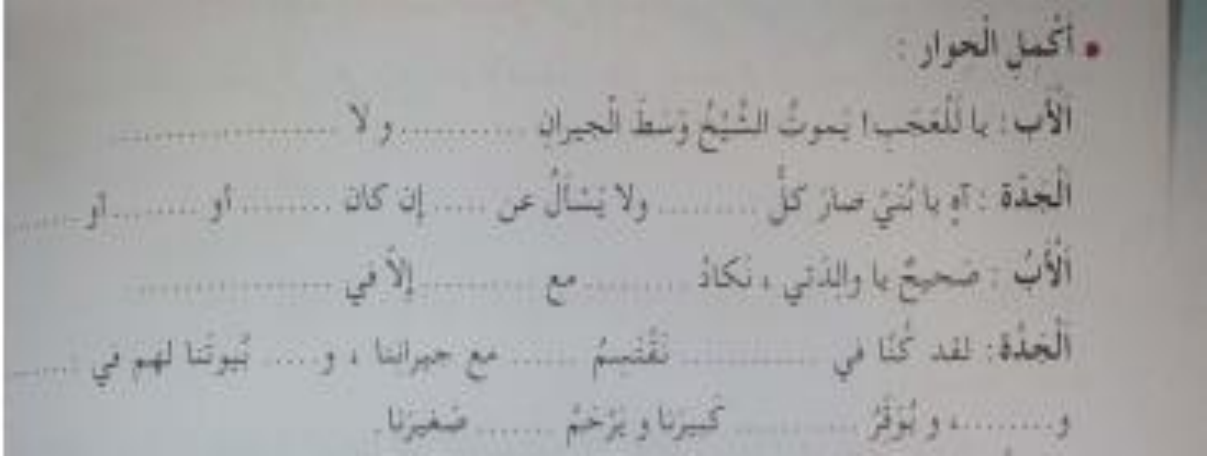 • أَكْمِلِ الْحِوار :
اَلْأَب : يا لَلْعَجَبِ ! يَموتُ الشَّيْخُ وَسَطَ الْجيرانِ ........... و لا ......................
الْجَدّة : آهِ يا بُنَيَّ صارَ كلُّ .......... ولا يَسْأَلُ عن ..... إن كان ......... أو ........ أو ......
اَلْأَبُ : صَحيحٌ يا والِدَتي ، نَكادُ ......... مع .......... إلاَّ في ....................
اَلْجَدَّة : لقد كُنّا في .............. نَقْتَسِمُ ...... مع جيراننا ، و.... بُيوتَنا لهم في ......
و........، و يُوَقِّرُ ............ كَبيرَنا و يَرْحَمُ ....... صَغيرَنا.